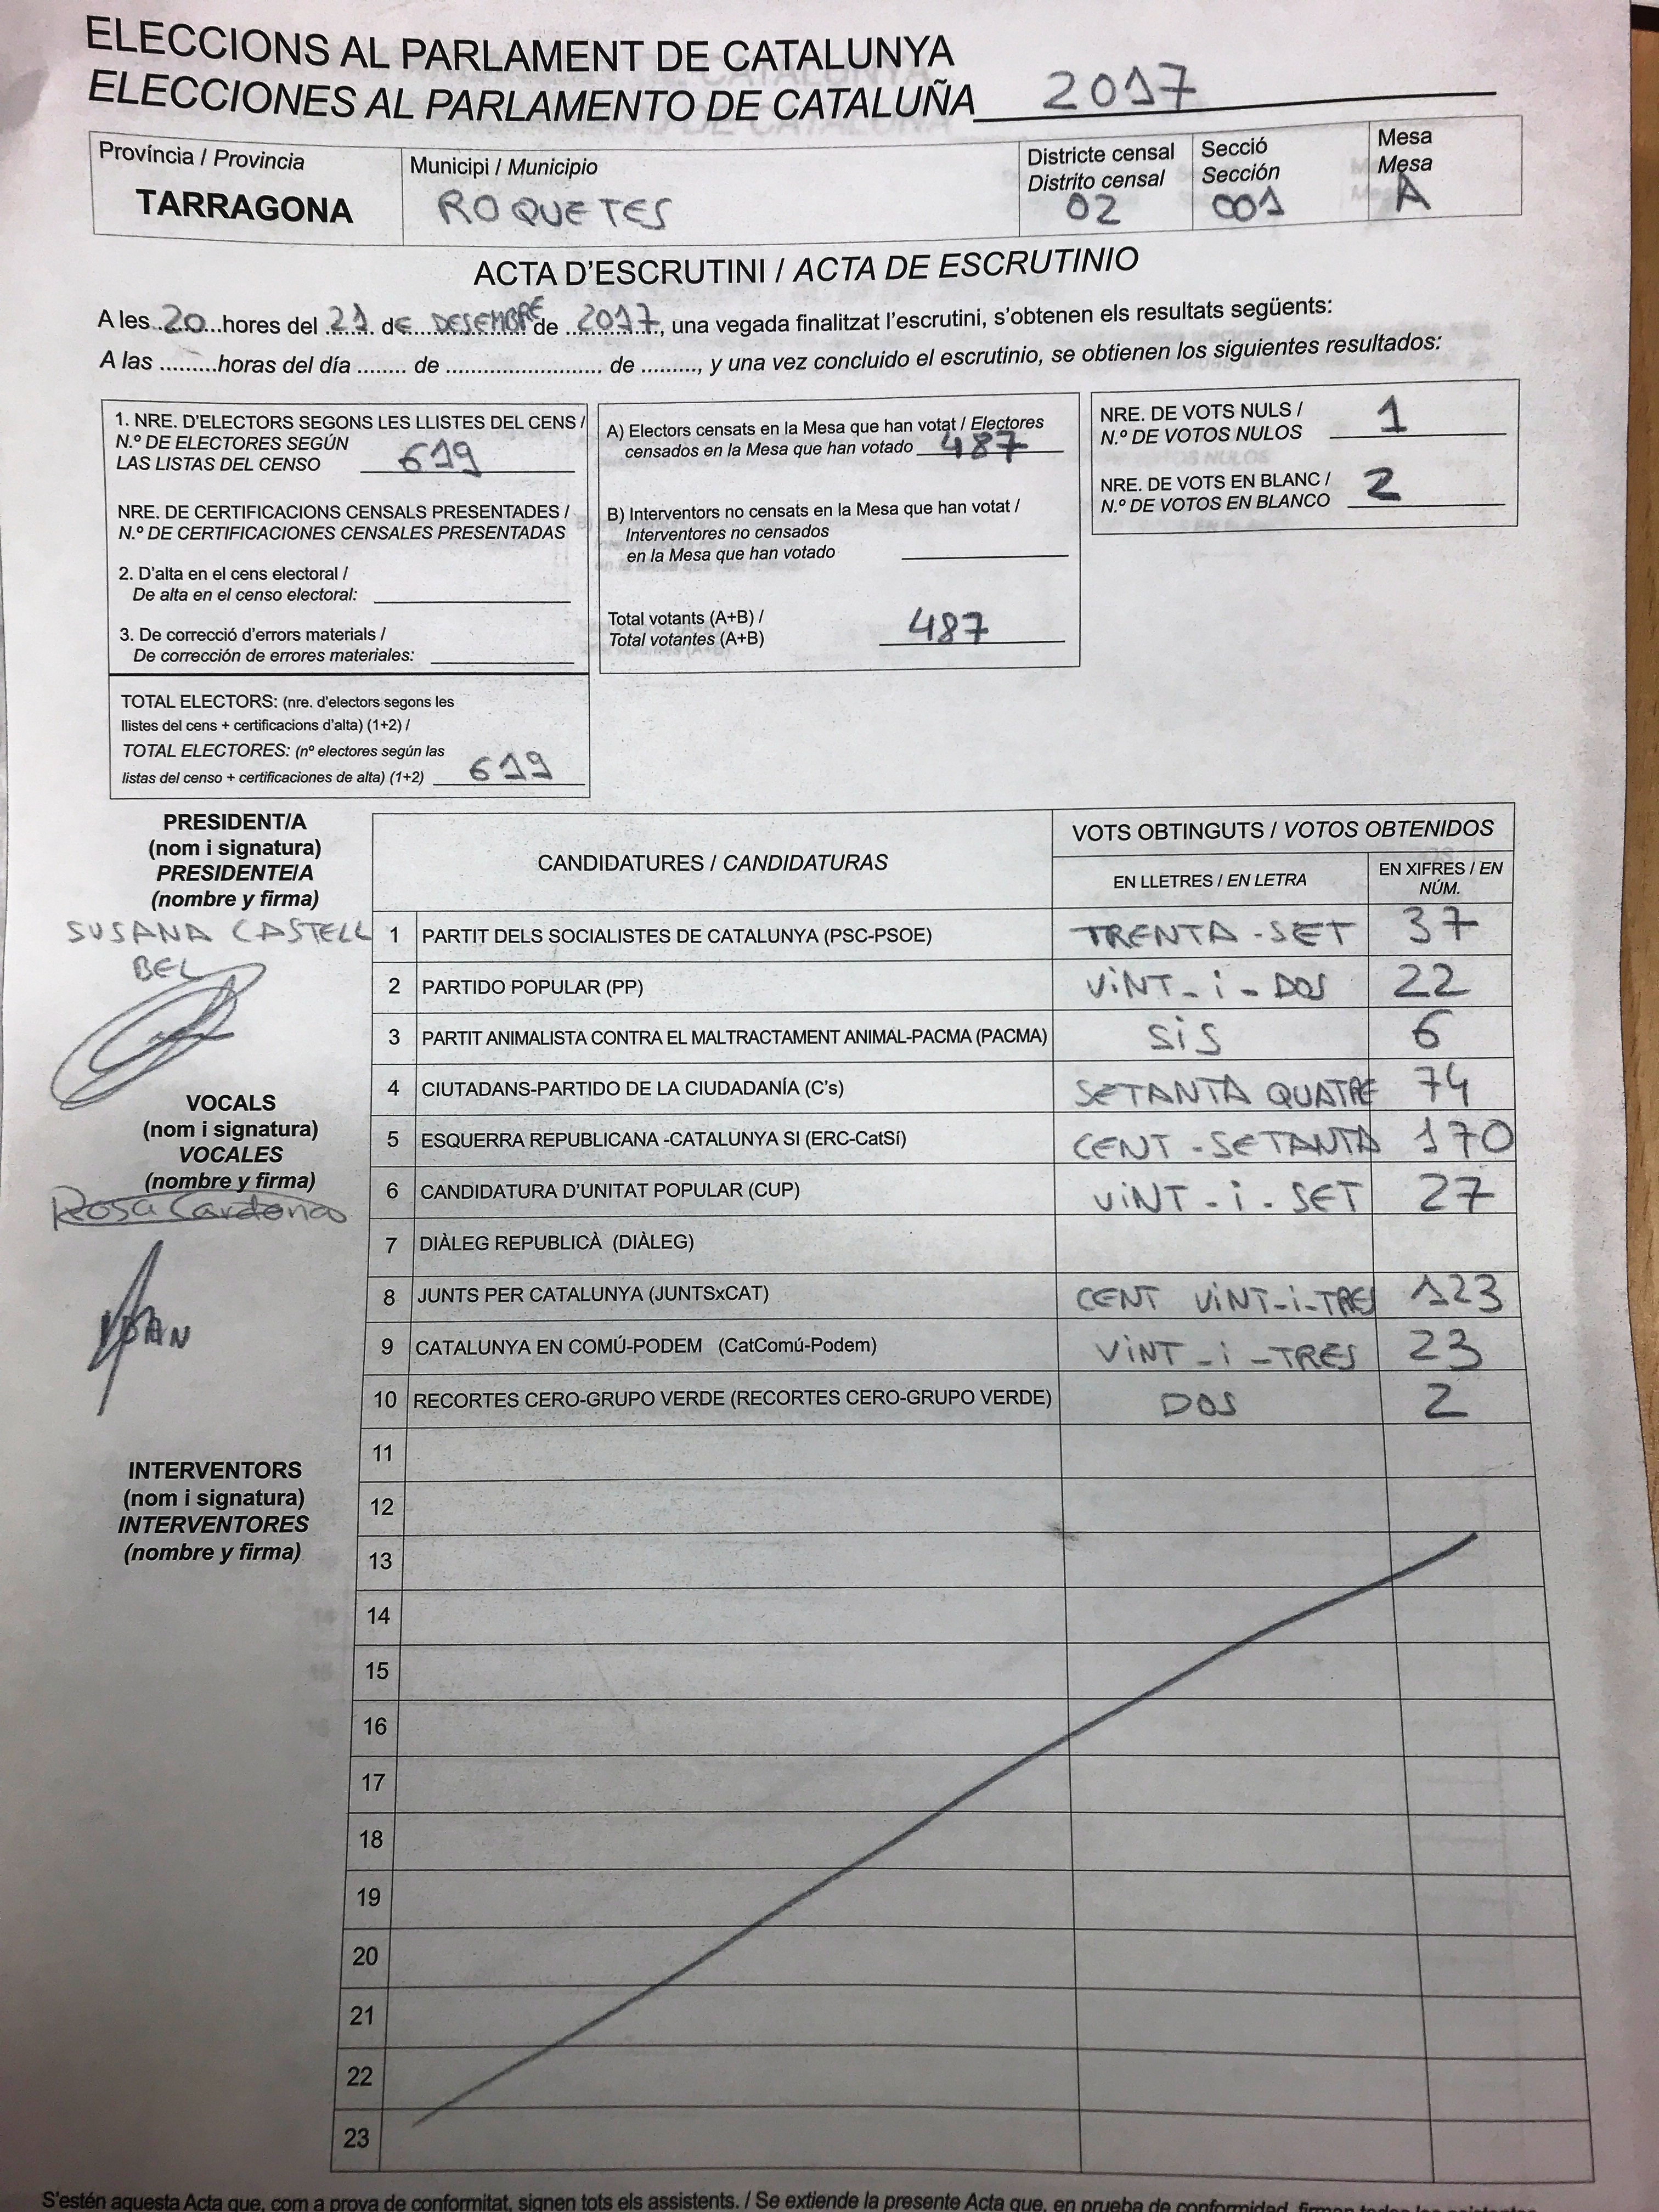 ELECCIONS AL PARLAMENT DE CATALUNYA
ELECCIONES AL PARLAMENTO DE CATALUÑA 2017
Província / Provincia
TARRAGONA
Municipi / Municipio
ROQUETES
Districte censal
Distrito censal
02
Secció
Sección
001
Mesa
Mesa
A
ACTA D'ESCRUTINI / ACTA DE ESCRUTINIO
A les 20 hores del 21 de DESEMBRE de 2017, una vegada finalitzat l'escrutini, s'obtenen els resultats següents:
A las .........horas del día ........ de ......................... de ........., y una vez concluido el escrutinio, se obtienen los siguientes resultados:
1. NRE. D'ELECTORS SEGONS LES LLISTES DEL CENS /
N.º DE ELECTORES SEGÚN
LAS LISTAS DEL CENSO 619
NRE. DE CERTIFICACIONS CENSALS PRESENTADES /
N.º DE CERTIFICACIONES CENSALES PRESENTADAS
2. D'alta en el cens electoral /
De alta en el censo electoral:
3. De correcció d'errors materials /
De corrección de errores materiales:
TOTAL ELECTORS: (nre. d'electors segons les
llistes del cens + certificacions d'alta) (1+2) /
TOTAL ELECTORES: (nº electores según las
listas del censo + certificaciones de alta) (1+2) 619
A) Electors censats en la Mesa que han votat / Electores
censados en la Mesa que han votado 487
B) Interventors no censats en la Mesa que han votat /
Interventores no censados
en la Mesa que han votado
Total votants (A+B) /
Total votantes (A+B) 487
NRE. DE VOTS NULS /
N.º DE VOTOS NULOS 1
NRE. DE VOTS EN BLANC /
N.º DE VOTOS EN BLANCO 2
PRESIDENT/A
(nom i signatura)
PRESIDENTE/A
(nombre y firma)
SUSANA CASTELL
BEL
VOCALS
(nom i signatura)
VOCALES
(nombre y firma)
Rosa
JOAN
INTERVENTORS
(nom i signatura)
INTERVENTORES
(nombre y firma)
CANDIDATURES / CANDIDATURAS
VOTS OBTINGUTS / VOTOS OBTENIDOS
EN LLETRES / EN LETRA
EN XIFRES / EN
NÚM.
1 PARTIT DELS SOCIALISTES DE CATALUNYA (PSC-PSOE) TRENTA-SET 37
2 PARTIDO POPULAR (PP) ViNT-i-DOS 22
3 PARTIT ANIMALISTA CONTRA EL MALTRACTAMENT ANIMAL-PACMA (PACMA) SiS 6
4 CIUTADANS-PARTIDO DE LA CIUDADANÍA (C's) SETANTA QUATRE 74
5 ESQUERRA REPUBLICANA -CATALUNYA SI (ERC-CatSí) CENT-SETANTA 170
6 CANDIDATURA D'UNITAT POPULAR (CUP) ViNT-i-SET 27
7 DIÀLEG REPUBLICÀ (DIÀLEG)
8 JUNTS PER CATALUNYA (JUNTSxCAT) CENT ViNT-i-TRES 123
9 CATALUNYA EN COMÚ-PODEM (CatComú-Podem) ViNT-i-TRES 23
10 RECORTES CERO-GRUPO VERDE (RECORTES CERO-GRUPO VERDE) DOS 2
11
12
13
14
15
16
17
18
19
20
21
22
23
S'estén aquesta Acta que, com a prova de conformitat, signen tots els assistents. / Se extiende la presente Acta que, en prueba de conformidad, firman todos los asistentes.